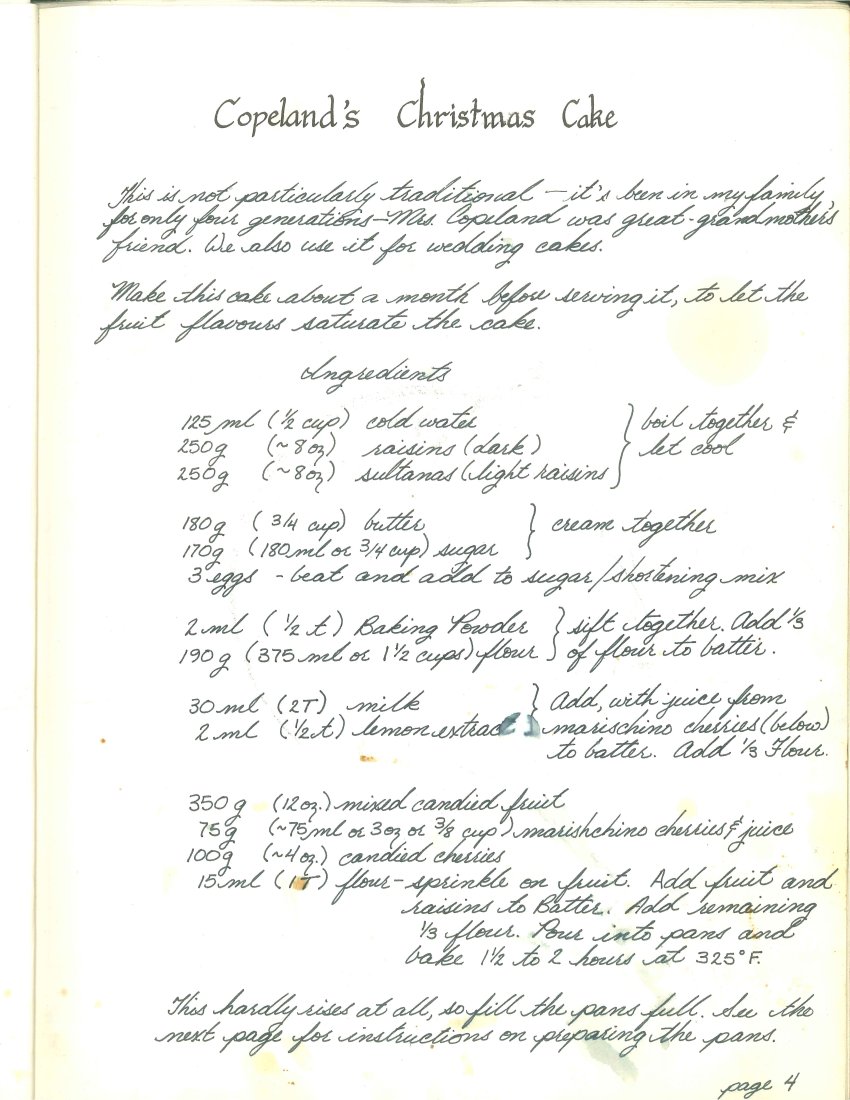 Copeland's Christmas Cake
This is not particularly traditional — it's been in my family
for only four generations — Mrs. Copeland was great-grandmother's
friend. We also use it for wedding cakes.
Make this cake about a month before serving it, to let the
fruit flavours saturate the cake.
Ingredients
125 ml (1/2 cup) cold water } boil together &
250g (~8oz) raisins (dark) let cool
250g (~8oz) sultanas (light raisins
180g (3/4 cup) butter } cream together
170g (180 ml or 3/4 cup) sugar
3 eggs - beat and add to sugar/shortening mix
2 ml (1/2 t) Baking Powder } sift together. Add 1/3
190g (375 ml or 1 1/2 cups) flour of flour to batter.
30 ml (2T) milk } Add, with juice from
2 ml (1/2 t) lemon extract marischino cherries (below)
to batter. Add 1/3 Flour.
350g (12oz.) mixed candied fruit
75g (~75ml or 3oz or 3/8 cup) marishchino cherries & juice
100g (~4oz.) candied cherries
15 ml (1T) flour - sprinkle on fruit. Add fruit and
raisins to Batter. Add remaining
1/3 flour. Pour into pans and
bake 1 1/2 to 2 hours at 325°F.
This hardly rises at all, so fill the pans full. See the
next page for instructions on preparing the pans.
page 4